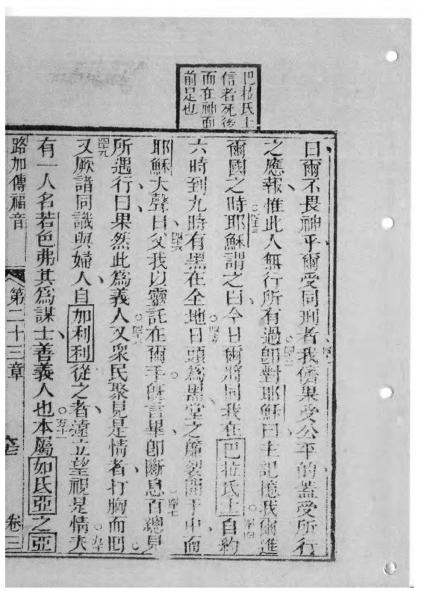 巴拉氏士
信者死後
而在神面
前足也
曰爾不畏神乎爾受同刑者我儕果受公平的蓋受所行
之應報惟此人無行所有過卽對耶穌曰主記憶我爾進
爾國之時耶穌謂之曰今日爾將同我在巴拉氏士自約
六時到九時有黑在全地日頭為黑堂之簾裂開于中而
耶穌大聲曰父我以靈託在爾手旣言畢卽斷息百總見
所遇行曰果然此為義人又眾民聚見是情者打胸而囘
又厥諸同識與婦人自加利利從之者遠立望視是情夫
有一人名若色弗其為謀士善義人也本屬如氏亞之亞
路加傳福音 第二十三章 卷三